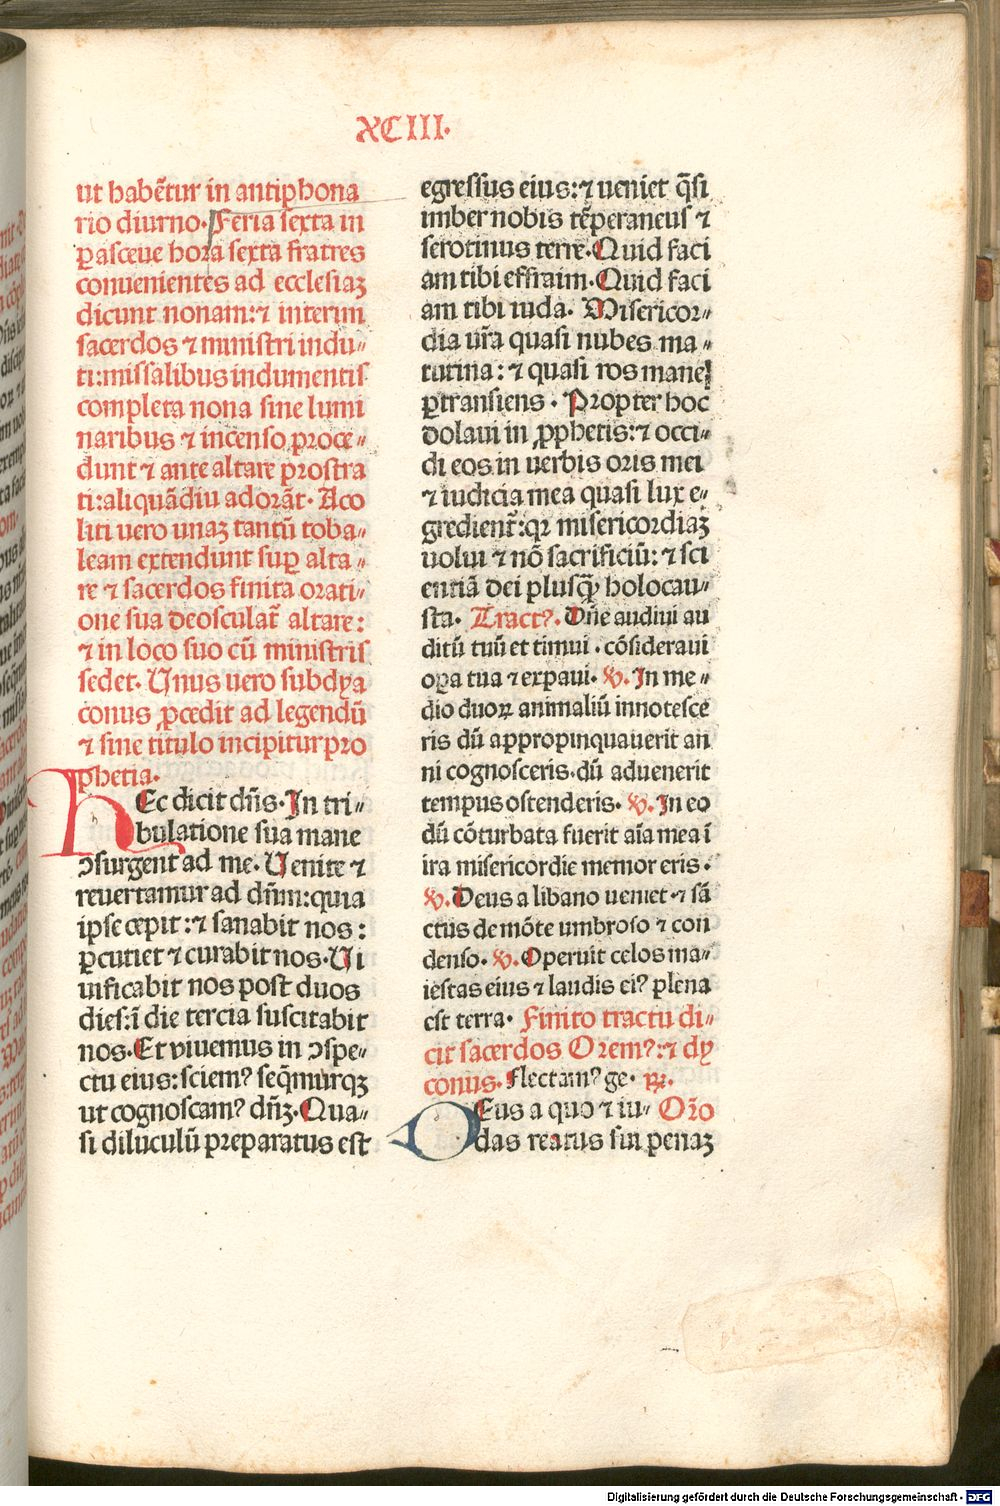 XCIII.
ut habẽtur in antiphona
rio diurno. Feria sexta in
ꝑasceue hora sexta fratres
conuenientes ad ecclesiaꝫ
dicunt nonam: ⁊ interim
sacerdos ⁊ ministri indu〃
ti: missalibus indumentis
completa nona sine lumi
naribus ⁊ incenso ꝓroce〃
dunt ⁊ ante altare prostra
ti: aliquãdiu adorãt. Aco
liti uero unaꝫ tantũ toba〃
leam extendunt suꝑ alta〃
re ⁊ sacerdos finita orati〃
one sua deosculat᷑ altare:
⁊ in loco suo cũ ministris
sedet. Unus uero subdya
conus ꝓcedit ad legendũ
⁊ sine titulo incipitur pro
phetia.
HEc dicit dñs. In tri〃
bulatione sua mane
ↄsurgent ad me. Uenite ⁊
reuertamur ad dñm: quia
ipse cepit: ⁊ sanabit nos:
ꝑcutiet ⁊ curabit nos. Ui
uificabit nos post duos
dies: ĩ die tercia suscitabit
nos. Et viuemus in ↄspe〃
ctu eius: sciemꝰ seq̃murqꝫ
ut cognoscamꝰ dñꝫ. Qua〃
si diluculũ preparatus est
egressus eius: ⁊ ueniet q̃si
imber nobis tẽperaneus ⁊
serotinus terre. Quid faci
am tibi effraim. Quid faci
am tibi iuda. Misericor〃
dia ur̃a quasi nubes ma〃
tutina: ⁊ quasi ros mane
ꝑtransiens. Propter hoc
dolaui in ꝓphetis: ⁊ occi〃
di eos in uerbis oris mei
⁊ iudicia mea quasi lux e〃
gredient᷑: qꝛ misericordiaꝫ
uolui ⁊ nõ sacrificiũ: ⁊ sci
entiã dei plusq̃ holocau〃
sta. Tractꝰ. Dñe audiui au
ditũ tuũ et timui. cõsideraui
oꝑa tua ⁊ expaui. ℣. In me〃
dio duoꝝ animaliũ innotesce
ris dũ appropinquauerit an
ni cognosceris. dũ aduenerit
tempus ostenderis. ℣. In eo
dũ cõturbata fuerit aĩa mea ĩ
ira misericordie memor eris.
℣. Deus a libano ueniet ⁊ sã
ctus de mõte umbroso ⁊ con
denso. ℣. Operuit celos ma〃
iestas eius ⁊ laudis eiꝰ plena
est terra. Finito tractu di〃
cit sacerdos Oremꝰ: ⁊ dy
conus. Flectamꝰ ge. ꝶ.
DEus a quo ⁊ iu〃 Or̃o
das reatus sui penaꝫ
Digitalisierung gefördert durch die Deutsche Forschungsgemeinschaft - DFG